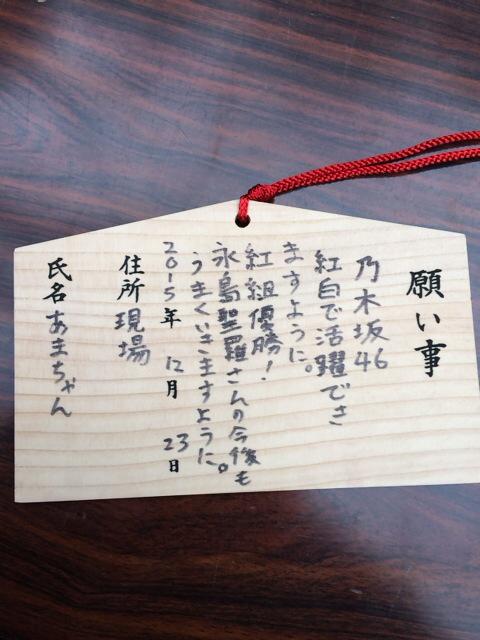 願い事
乃木坂46
紅白で活躍でき
ますように。
紅組優勝！
永島聖羅さんの今後も
うまくいきますように。
2015年 12月 23日
住所 現場
氏名 あまちゃん